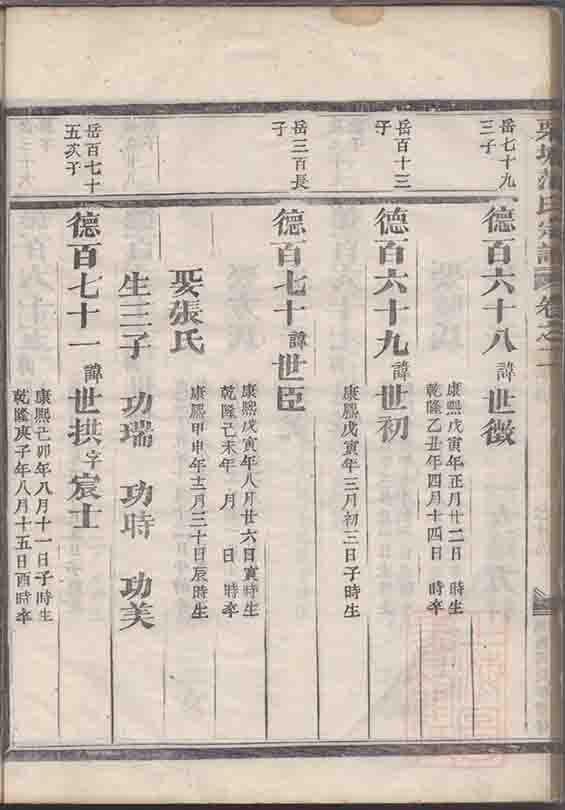 氏宗譜 卷之二
岳七十九
三子
德百六十八 諱世徵
康熙戊寅年正月廿二日 時生
乾隆乙丑年四月十四日 時卒
岳百十三
子
德百六十九 諱世初
康熙戊寅年三月初三日子時生
岳三百長
子
德百七十 諱世臣
康熙戊寅年八月廿六日寅時生
乾隆己未年 月 日 時卒
娶張氏
康熙甲申年十二月三十日辰時生
生三子 功瑞 功時 功美
岳百七十
五亥子
德百七十一 諱世拱字宸士
康熙己卯年八月十一日子時生
乾隆庚子年八月十五日酉時卒